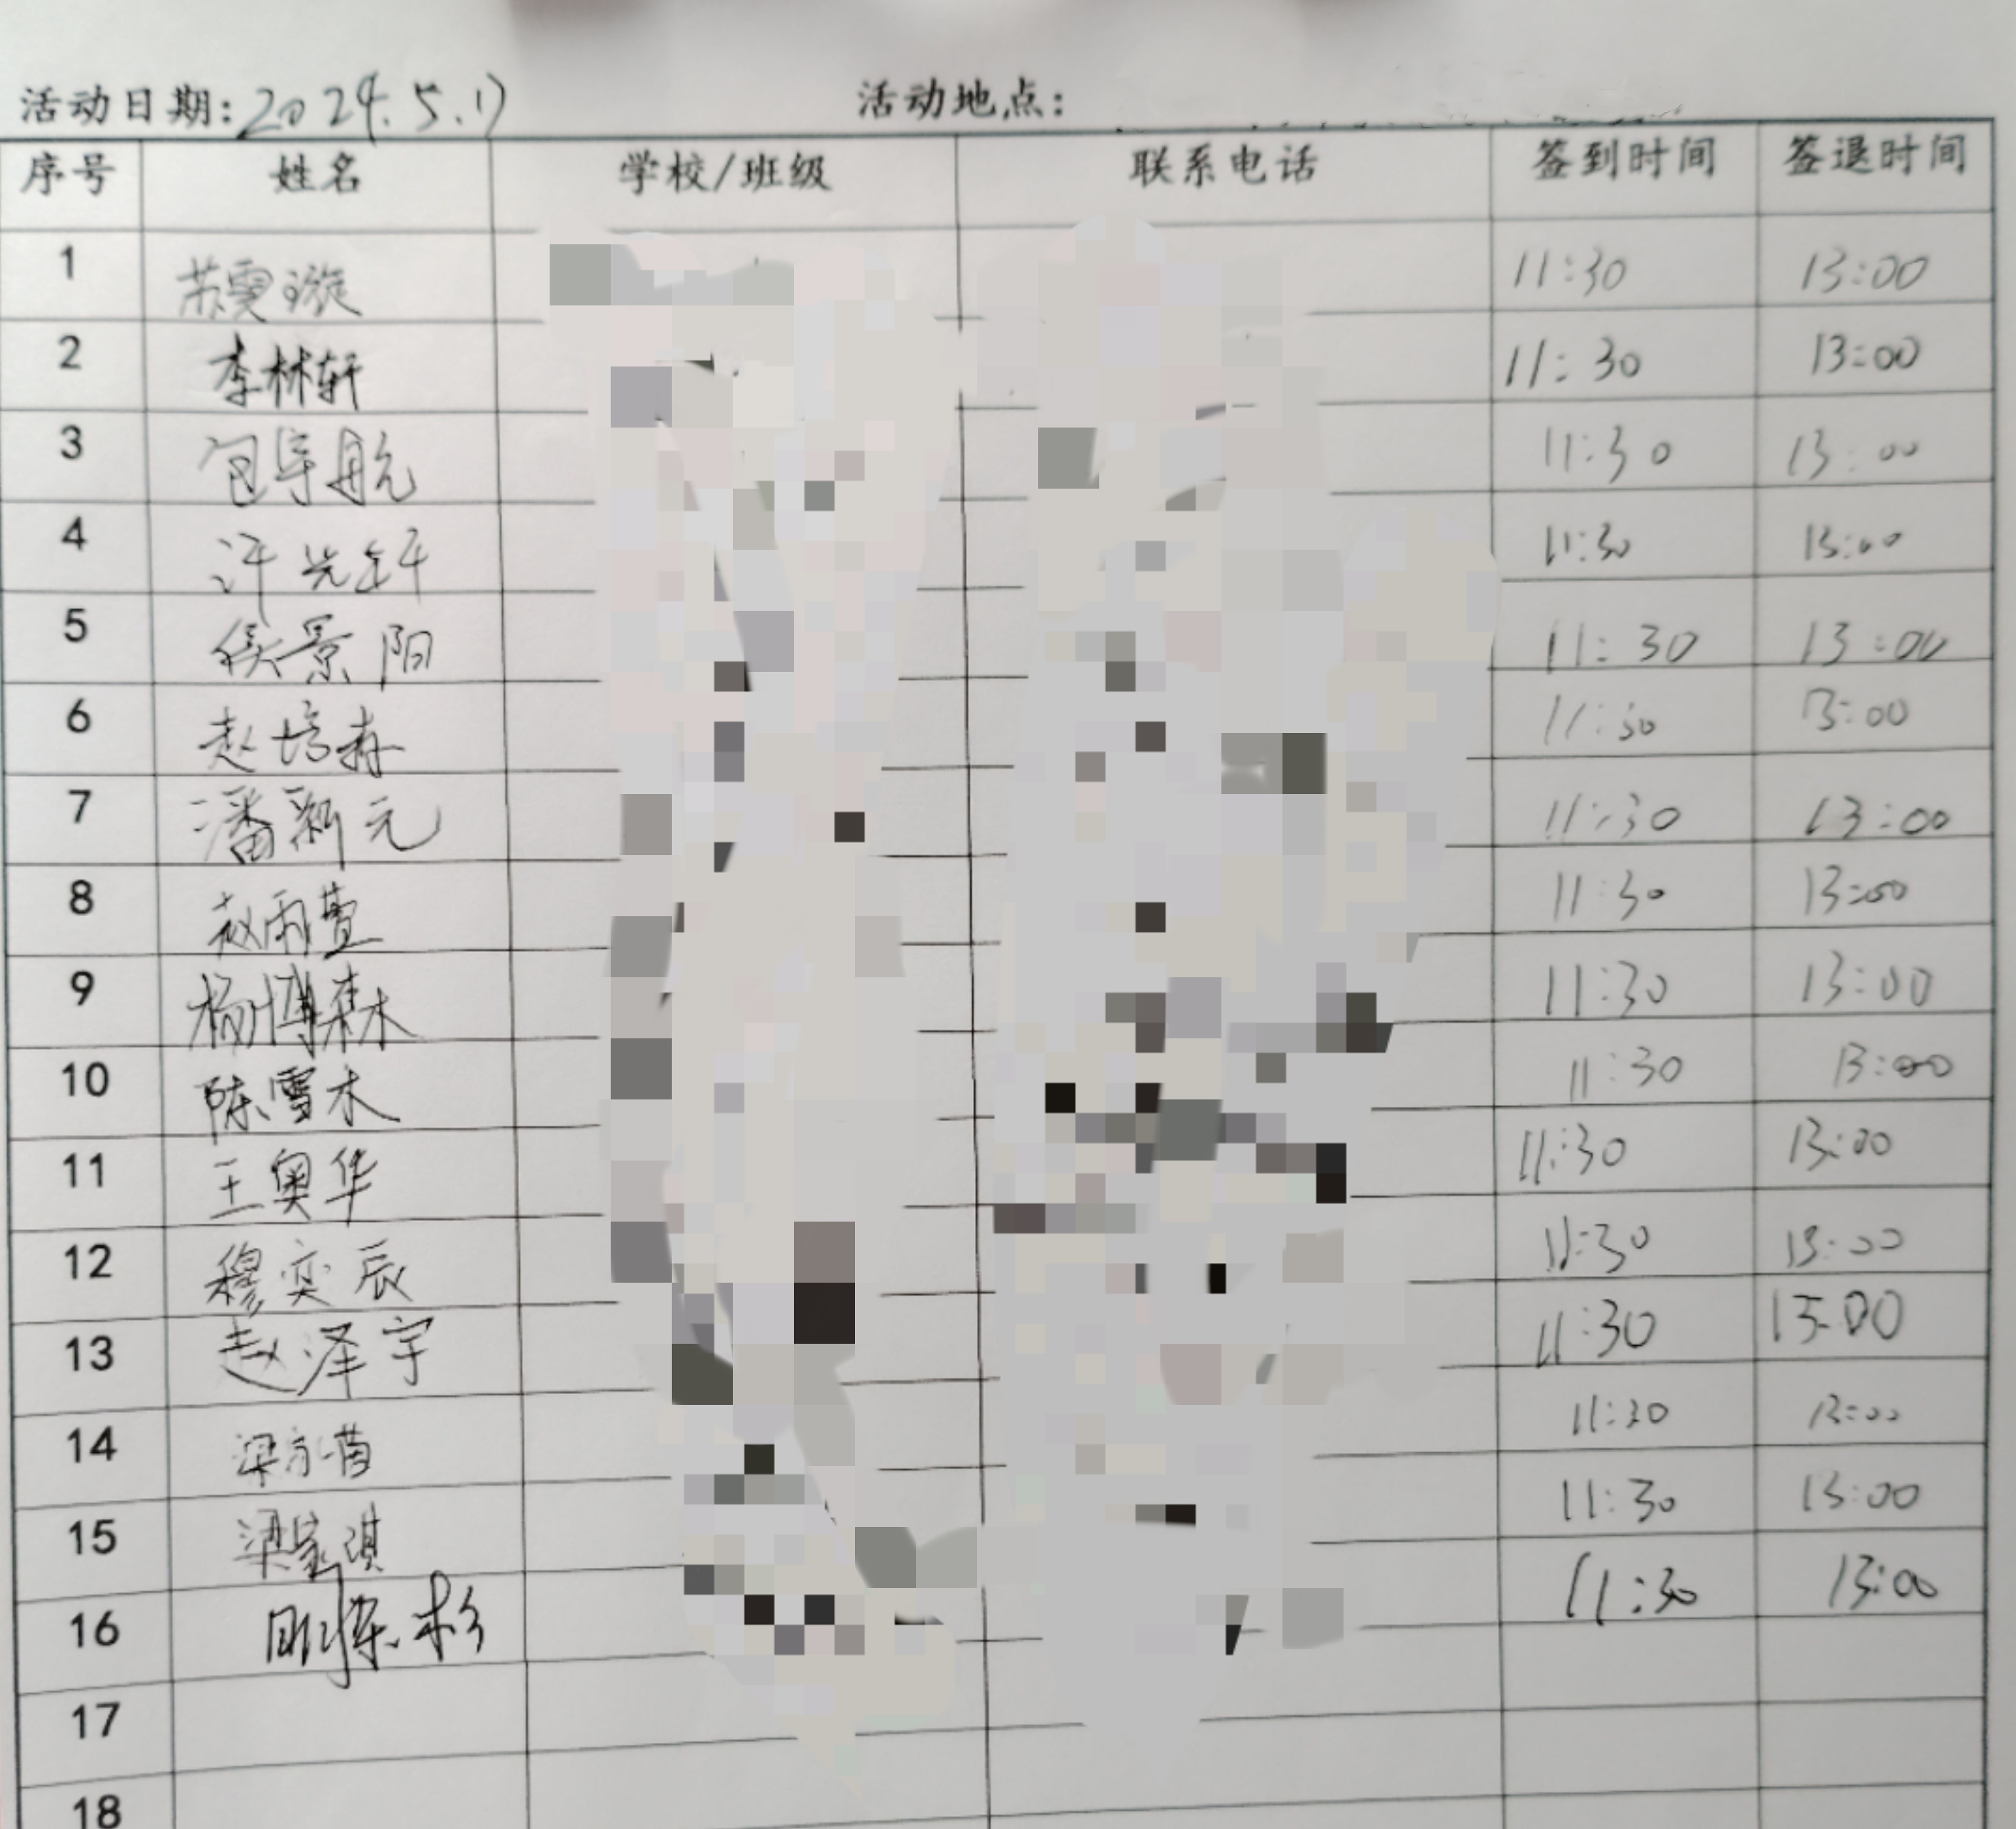 活动日期: 2024.5.17 活动地点:
序号 姓名 学校/班级 联系电话 签到时间 签退时间
1 苏雯璇 11:30 13:00
2 李林轩 11:30 13:00
3 包宇航 11:30 13:00
4 11:30 13:00
5 侯景阳 11:30 13:00
6 赵培森 11:30 13:00
7 潘新元 11:30 13:00
8 赵雨萱 11:30 13:00
9 杨博森 11:30 13:00
10 陈雪木 11:30 13:00
11 王奥华 11:30 13:00
12 穆奕辰 11:30 13:00
13 赵泽宇 11:30 13:00
14 11:30 13:00
15 梁家琪 11:30 13:00
16 11:30 13:00
17
18